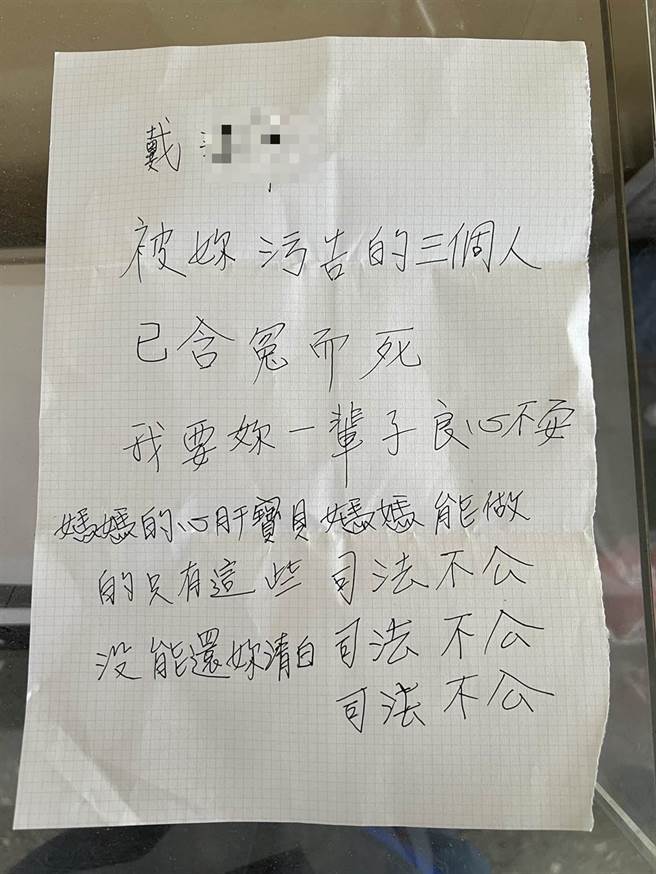 戴
被妳污告的三個人
已含冤而死
我要妳一輩子良心不安
媽媽的心肝寶貝媽媽能做
的只有這些司法不公
没能還妳清白司法不公
司法不公